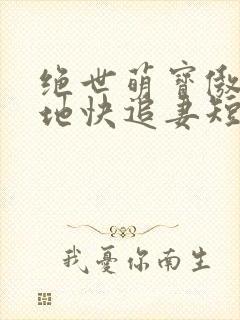 绝世萌寶傲
地快追妻短
我憂你南生